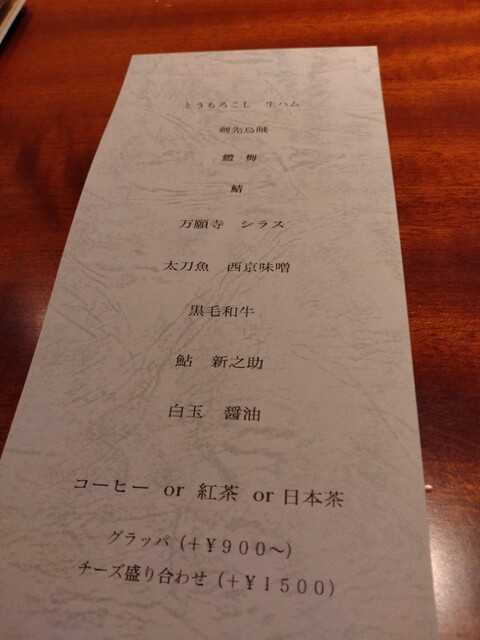 とうもろこし　生ハム
剣先烏賊
鱧　梅
鯖
万願寺　シラス
太刀魚　西京味噌
黒毛和牛
鮎　新之助
白玉　醤油
コーヒー or 紅茶 or 日本茶
グラッパ（＋￥９００～）
チーズ盛り合わせ（＋￥１５００）